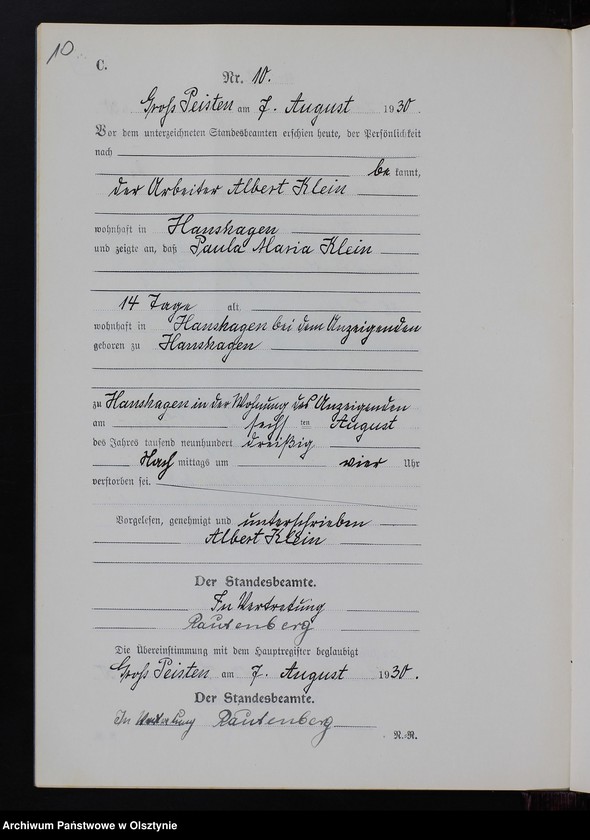 10
C.
Nr. 10.
Groß Peisten am 7. August 1930.
Vor dem unterzeichneten Standesbeamten erschien heute, der Persönlichkeit
nach
be kannt,
der Arbeiter Albert Klein
wohnhaft in Hanshagen
und zeigte an, daß Paula Maria Klein
14 Tage alt
wohnhaft in Hanshagen bei dem Anzeigenden
geboren zu Hanshagen
zu Hanshagen in der Wohnung des Anzeigenden
am sechs ten August
des Jahres tausend neunhundert dreißig
Nach mittags um vier Uhr
verstorben sei.
Vorgelesen, genehmigt und unterschrieben
Albert Klein
Der Standesbeamte.
In Vertretung
Rautenberg
Die Übereinstimmung mit dem Hauptregister beglaubigt
Groß Peisten am 7. August 1930.
Der Standesbeamte.
In Vertretung Rautenberg
N.-R.
Archiwum Państwowe w Olsztynie